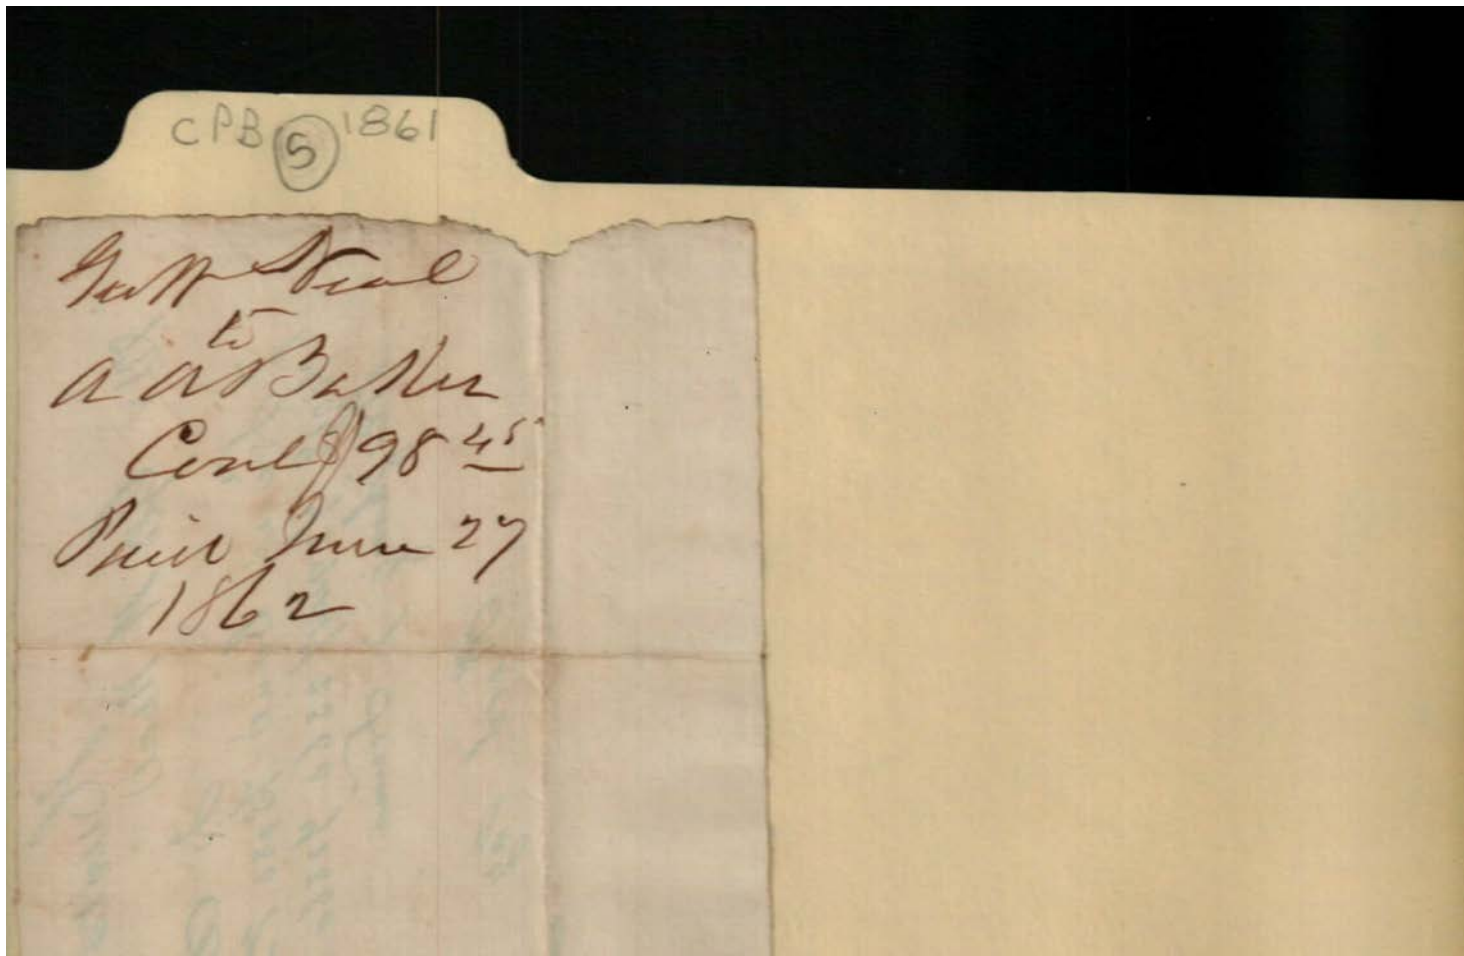 CPB 5 1861
Geo W Neal
to
A A Baker
Coal $98 45
Paid June 27
1862